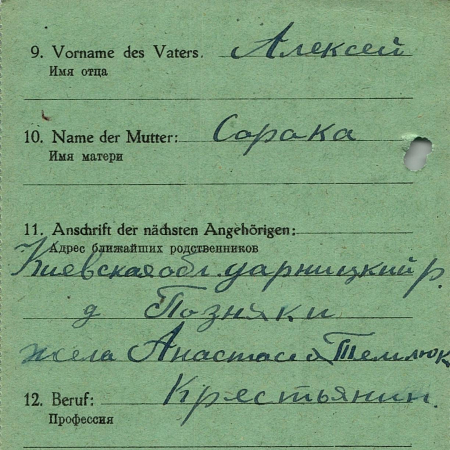 9. Vorname des Vaters. Алексей
Имя отца
10. Name der Mutter: Сорока
Имя матери
11. Anschrift der nächsten Angehörigen:
Адрес ближайших родственников
Киевская обл. дарницкий р.
д Позняки
жена Анастасия Темлюк
12. Beruf: Крестьянин.
Профессия